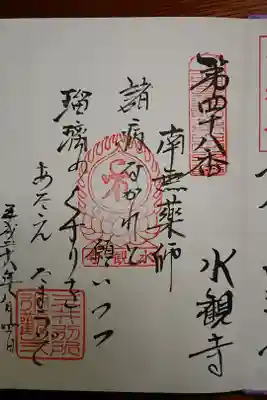 第四十八番
水観寺
南無薬師
諸病なかれと
願いつつ
瑠璃のくすりを
あたえたまうで
平成二十八年八月四日